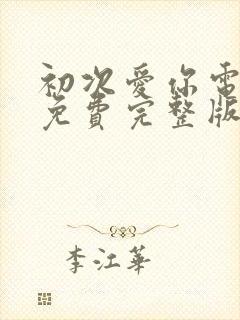 初次愛你電
免費完整版
李江華